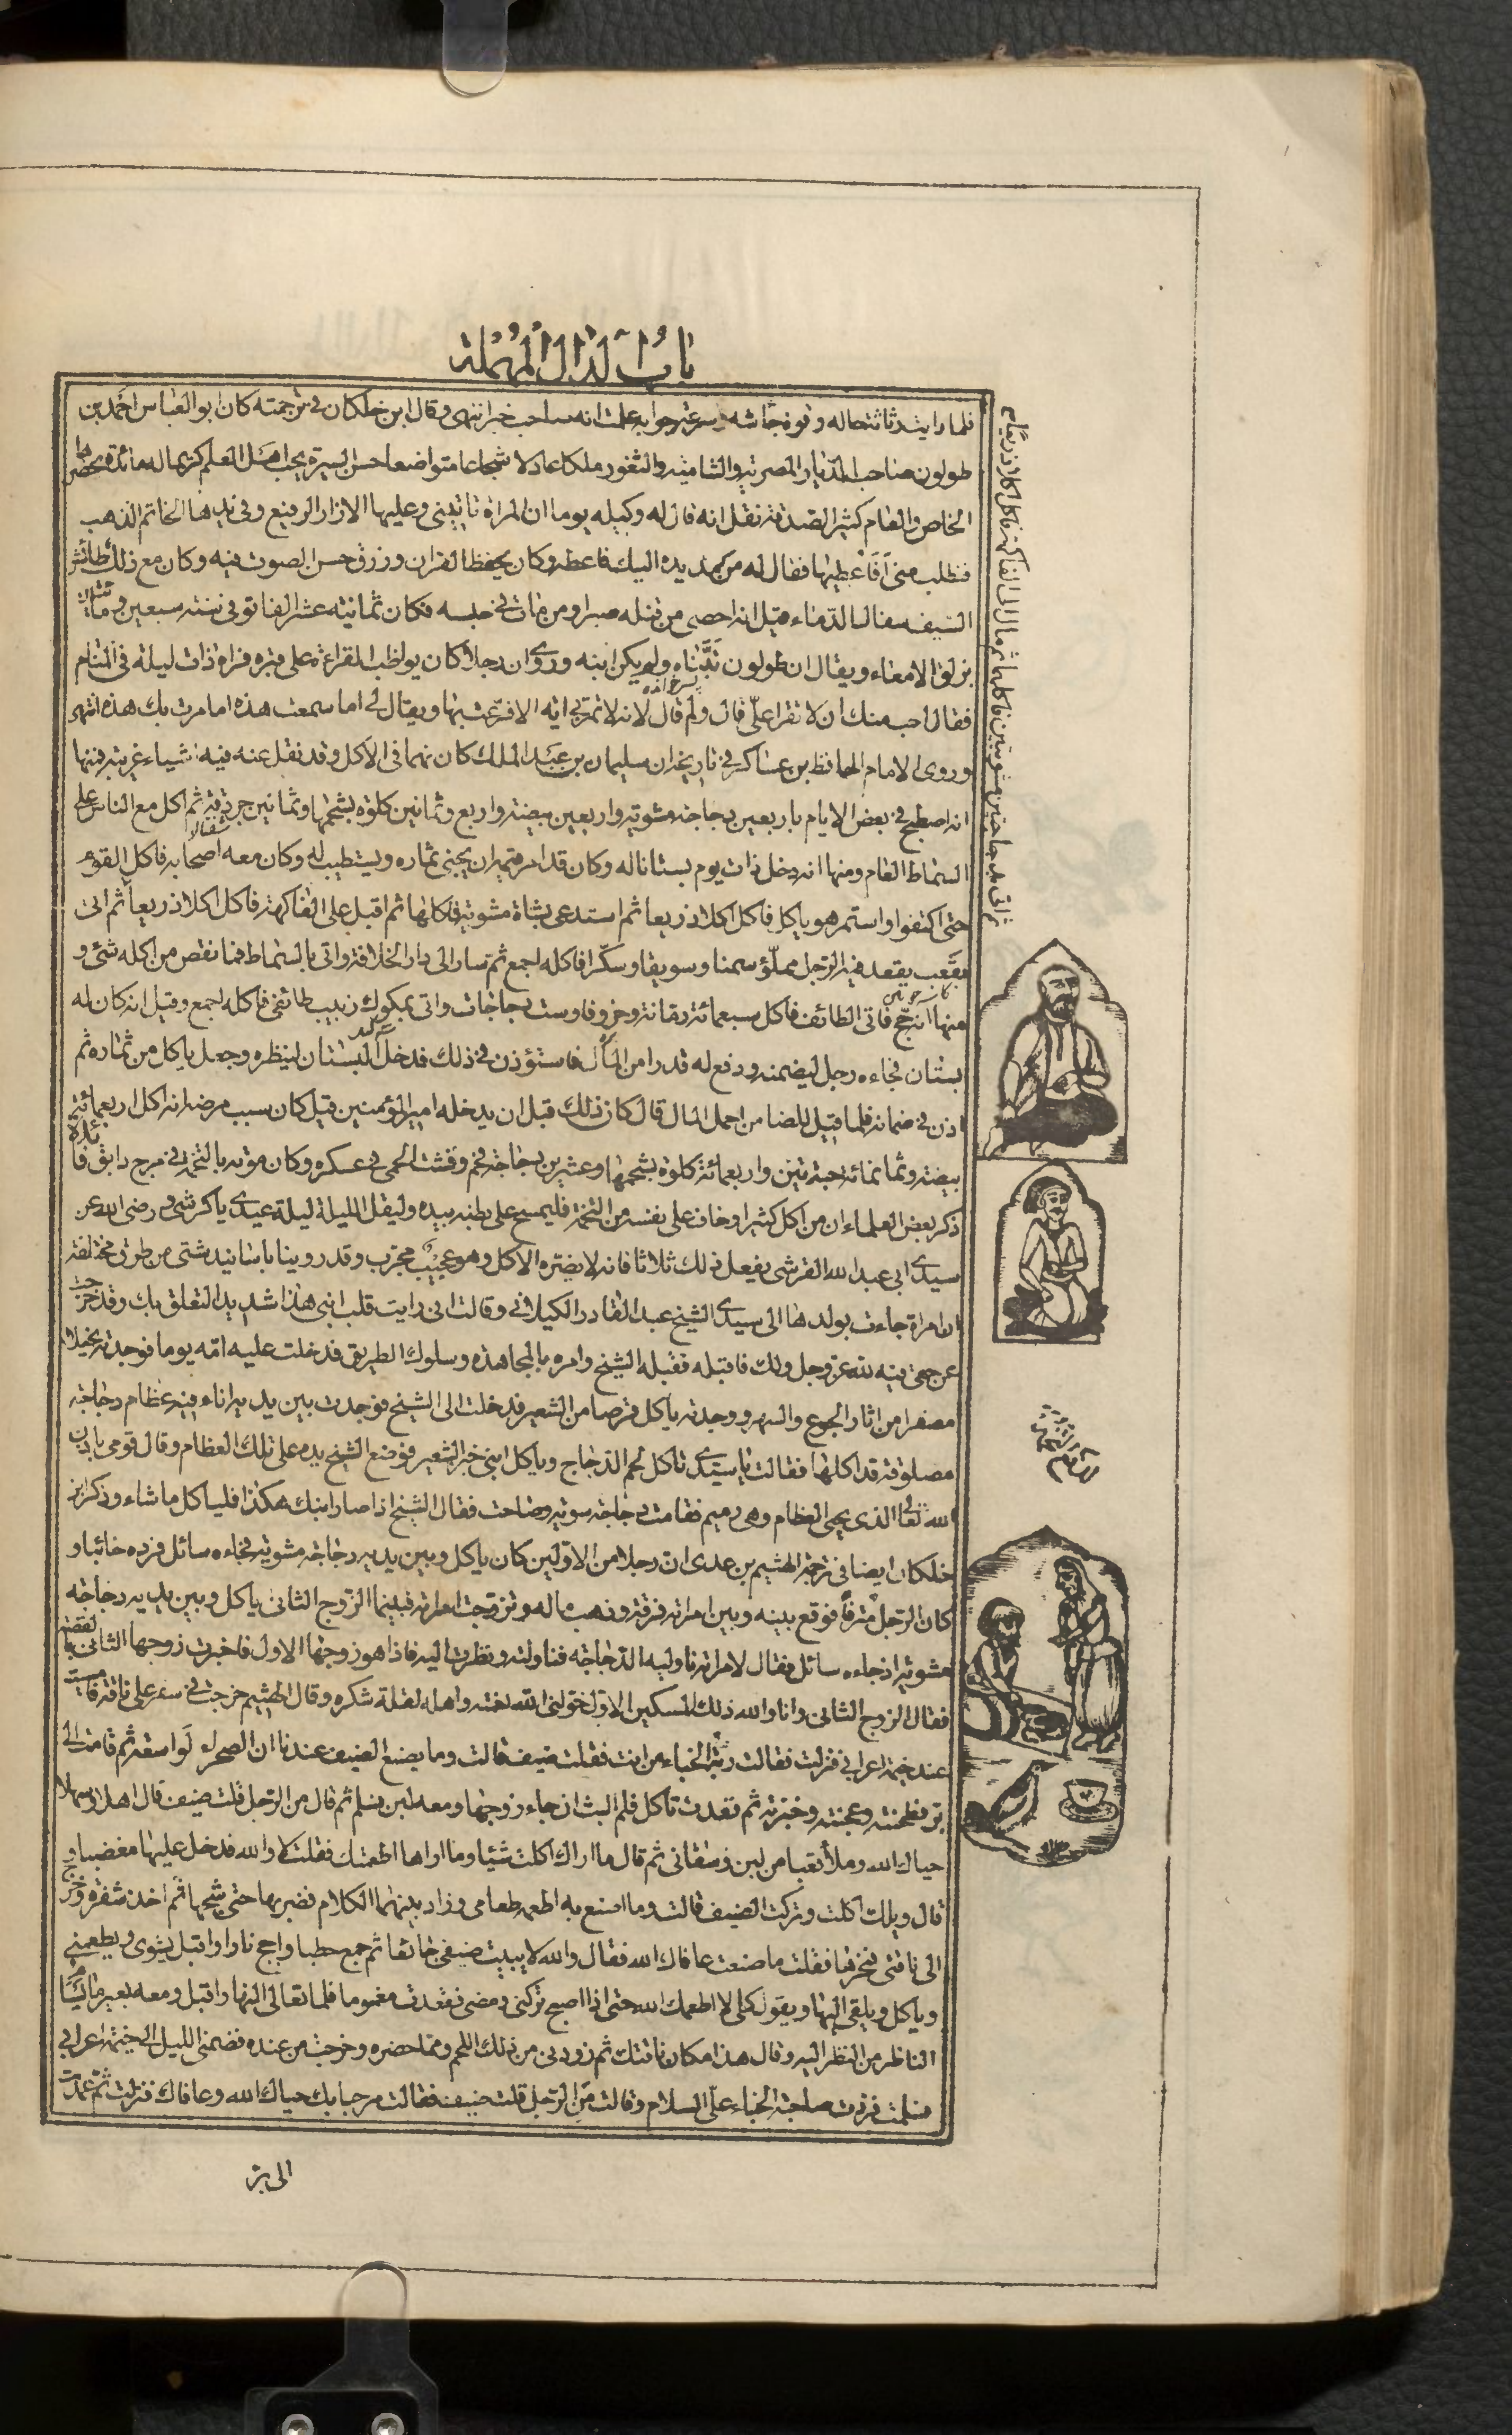 باب الدال المهملة
فلما رايت رثاثة حاله وقوة جاشه وسرعة جوابه علمت انه صاحب خبر انتهى وقال ابن خلكان في ترجمته كان ابو العباس احمد بن
طولون صاحب الديار المصرية والشامية والثغور ملكا عادلا شجاعا متواضعا حسن السيرة يحب اهل العلم كريما له مائدة يحضرها
الخاص والعام كثير الصدقة نقل انه قال له وكيله يوما ان المراة تاتيني وعليها الازار الرفيع وفي يدها الخاتم الذهب
فتطلب مني أفأعطيها فقال له من مد يده اليك فاعطه وكان يحفظ القران ورزق حسن الصوت فيه وكان مع ذلك طائش
السيف سفاك الدماء قيل انه احصي من قتله صبرا ومن مات في حبسه فكان ثمانية عشر الفا توفي سنة سبعين ومائتين
بزلق الامعاء ويقال ان طولون تبناه ولم يكن ابنه وروي ان رجلا كان يواظب القراءة على قبره فراه ذات ليلة في المنام
فقال احب منك ان لا تقرا علي قال ولم قال لانه لا تمر بي اية الا قرعت بها ويقال لي اما سمعت هذه اما مرت بك هذه انتهى
وروى الامام الحافظ بن عساكر في تاريخه ان سليمان بن عبد الملك كان نهما في الاكل وقد نقل عنه فيه اشياء غريبة فمنها
انه اصطبح في بعض الايام باربعين دجاجة مشوية واربعين بيضة واربع وثمانين كلوة بشحمها وثمانين جردقة ثم اكل مع الناس على
السماط العام ومنها انه دخل ذات يوم بستانا له وكان قد امر قيمه ان يجنى ثماره ويستطيب له وكان معه اصحابه فاكل القوم
حتى اكتفوا واستمر هو ياكل فاكل اكلا ذريعا ثم استدعى بشاة مشوية فاكلها ثم اقبل على الفاكهة فاكل اكلا ذريعا ثم اتى
بقعب يقعد فيه الرجل مملؤ سمنا وسويقا وسكرا فاكله اجمع ثم سار الى دار الخلافة واتى بالسماط فما نقص من اكله شئ و
منها انه حج فاتى الطائف فاكل سبعمائة رمانة وخروفا وست دجاجات واتى بمكوك زبيب طائفي فاكله اجمع وقيل انه كان له
بستان فجاءه رجل ليضمنه ودفع له قدرا من المال فاستؤذن في ذلك فدخل البستان لينظره وجعل ياكل من ثماره ثم
اذن في ضمانه فلما قيل للضامن احمل المال قال كان ذلك قبل ان يدخله امير المؤمنين قيل كان سبب مرضه انه اكل اربعمائة
بيضة وثمانمائة حبة تين واربعمائة كلوة بشحمها وعشرين دجاجة فحم وفشت الحمى في عسكره وكان موته بالتخمة في مرج دابق فائدة
ذكر بعض العلماء ان من اكل كثيرا وخاف على نفسه من التخمة فليمسح على بطنه بيده وليقل الليلة ليلة عيدي يا كرشي ورضي الله عن
سيدي ابي عبد الله القرشي يفعل ذلك ثلاثا فانه لا يضره الاكل وهو عجيب مجرب وقد روينا باسانيد شتى من طرق مختلفة
ان امراة جاءت بولدها الى سيدي الشيخ عبد القادر الكيلاني وقالت اني رايت قلب ابني هذا شديد التعلق بك وقد خرجت
عن حقي فيه لله عز وجل ولك فاقبله فقبله الشيخ وامره بالمجاهدة وسلوك الطريق فدخلت عليه امه يوما فوجدته نحيلا
مصفرا من اثار الجوع والسهر ووجدته ياكل قرصا من الشعير فدخلت الى الشيخ فوجدت بين يديه اناء فيه عظام دجاجة
مصلوقة قد اكلها فقالت يا سيدي تاكل لحم الدجاج وياكل ابني خبز الشعير فوضع الشيخ يده على تلك العظام وقال قومي باذن
الله تعالى الذي يحيي العظام وهي رميم فقامت دجاجة سوية وصاحت فقال الشيخ اذا صار ابنك هكذا فلياكل ما شاء وذكر ابن
خلكان ايضا في ترجمة الهيثم بن عدي ان رجلا من الاولين كان ياكل وبين يديه دجاجة مشوية فجاءه سائل فرده خائبا و
كان الرجل مترفا فوقع بينه وبين امراته فرقة وذهب ماله وتزوجت امراته فبينما الزوج الثاني ياكل وبين يديه دجاجة
مشوية اذ جاءه سائل فقال لامراته ناوليه الدجاجة فناولته ونظرت اليه فاذا هو زوجها الاول فاخبرت زوجها الثاني بالقصة
فقال الزوج الثاني وانا والله ذلك المسكين الاول خولني الله نعمته واهله لقلة شكره وقال الهيثم خرجت في سفر على ناقة فامسيت
عند خيمة اعرابي فنزلت فقالت ربة الخباء من انت فقلت ضيف قالت وما يصنع الضيف عندنا ان الصحراء لواسعة ثم قامت الى
بر فطحنته وعجنته وخبزته ثم قعدت تاكل فلم البث ان جاء زوجها ومعه لبن فسلم ثم قال من الرجل قلت ضيف قال اهلا وسهلا
حياك الله وملأ قعبا من لبن وسقاني ثم قال ما اراك اكلت شيئا وما اراها اطعمتك فقلت لا والله فدخل عليها مغضبا و
قال ويلك اكلت وتركت الضيف قالت وما اصنع به اطعمه طعامي وزاد بينهما الكلام فضربها حتى شجها ثم اخذ شفرة وخرج
الى ناقتي فنحرها فقلت ما صنعت عافاك الله فقال والله لا يبيت ضيفي جائعا ثم جمع حطبا واجج نارا واقبل يشوي ويطعمني
وياكل ويلقي اليها ويقول كلي لا اطعمك الله حتى اذا اصبح تركني ومضى فقعدت مغموما فلما تعالى النهار اقبل ومعه بعير ما يسأم
الناظر من النظر اليه وقال هذا مكان ناقتك ثم زودني من ذلك اللحم ومما حضره وخرجت من عنده فضمني الليل الى خيمة اعرابي
فسلمت فردت صاحبة الخباء علي السلام وقالت من الرجل قلت ضيف فقالت مرحبا بك حياك الله وعافاك فنزلت ثم عمدت
الى بر